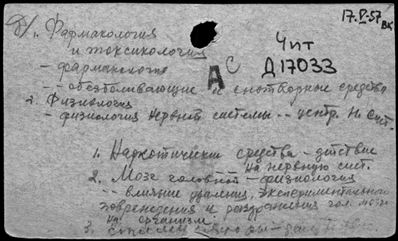 17.V-57
б/. Фармакология
и токсикология
Чит
Д17033
АС
- фармакология
- обезболивающие и снотворные средства
2. Физиология
- физиология нервной системы -- центр. н. сист.
1. Наркотические средства - действие
на нервную сист.
2. Мозг головной - физиология
-- влияние удаления, экспериментального
повреждения и раздражения гол. мозга
на организм.
3.